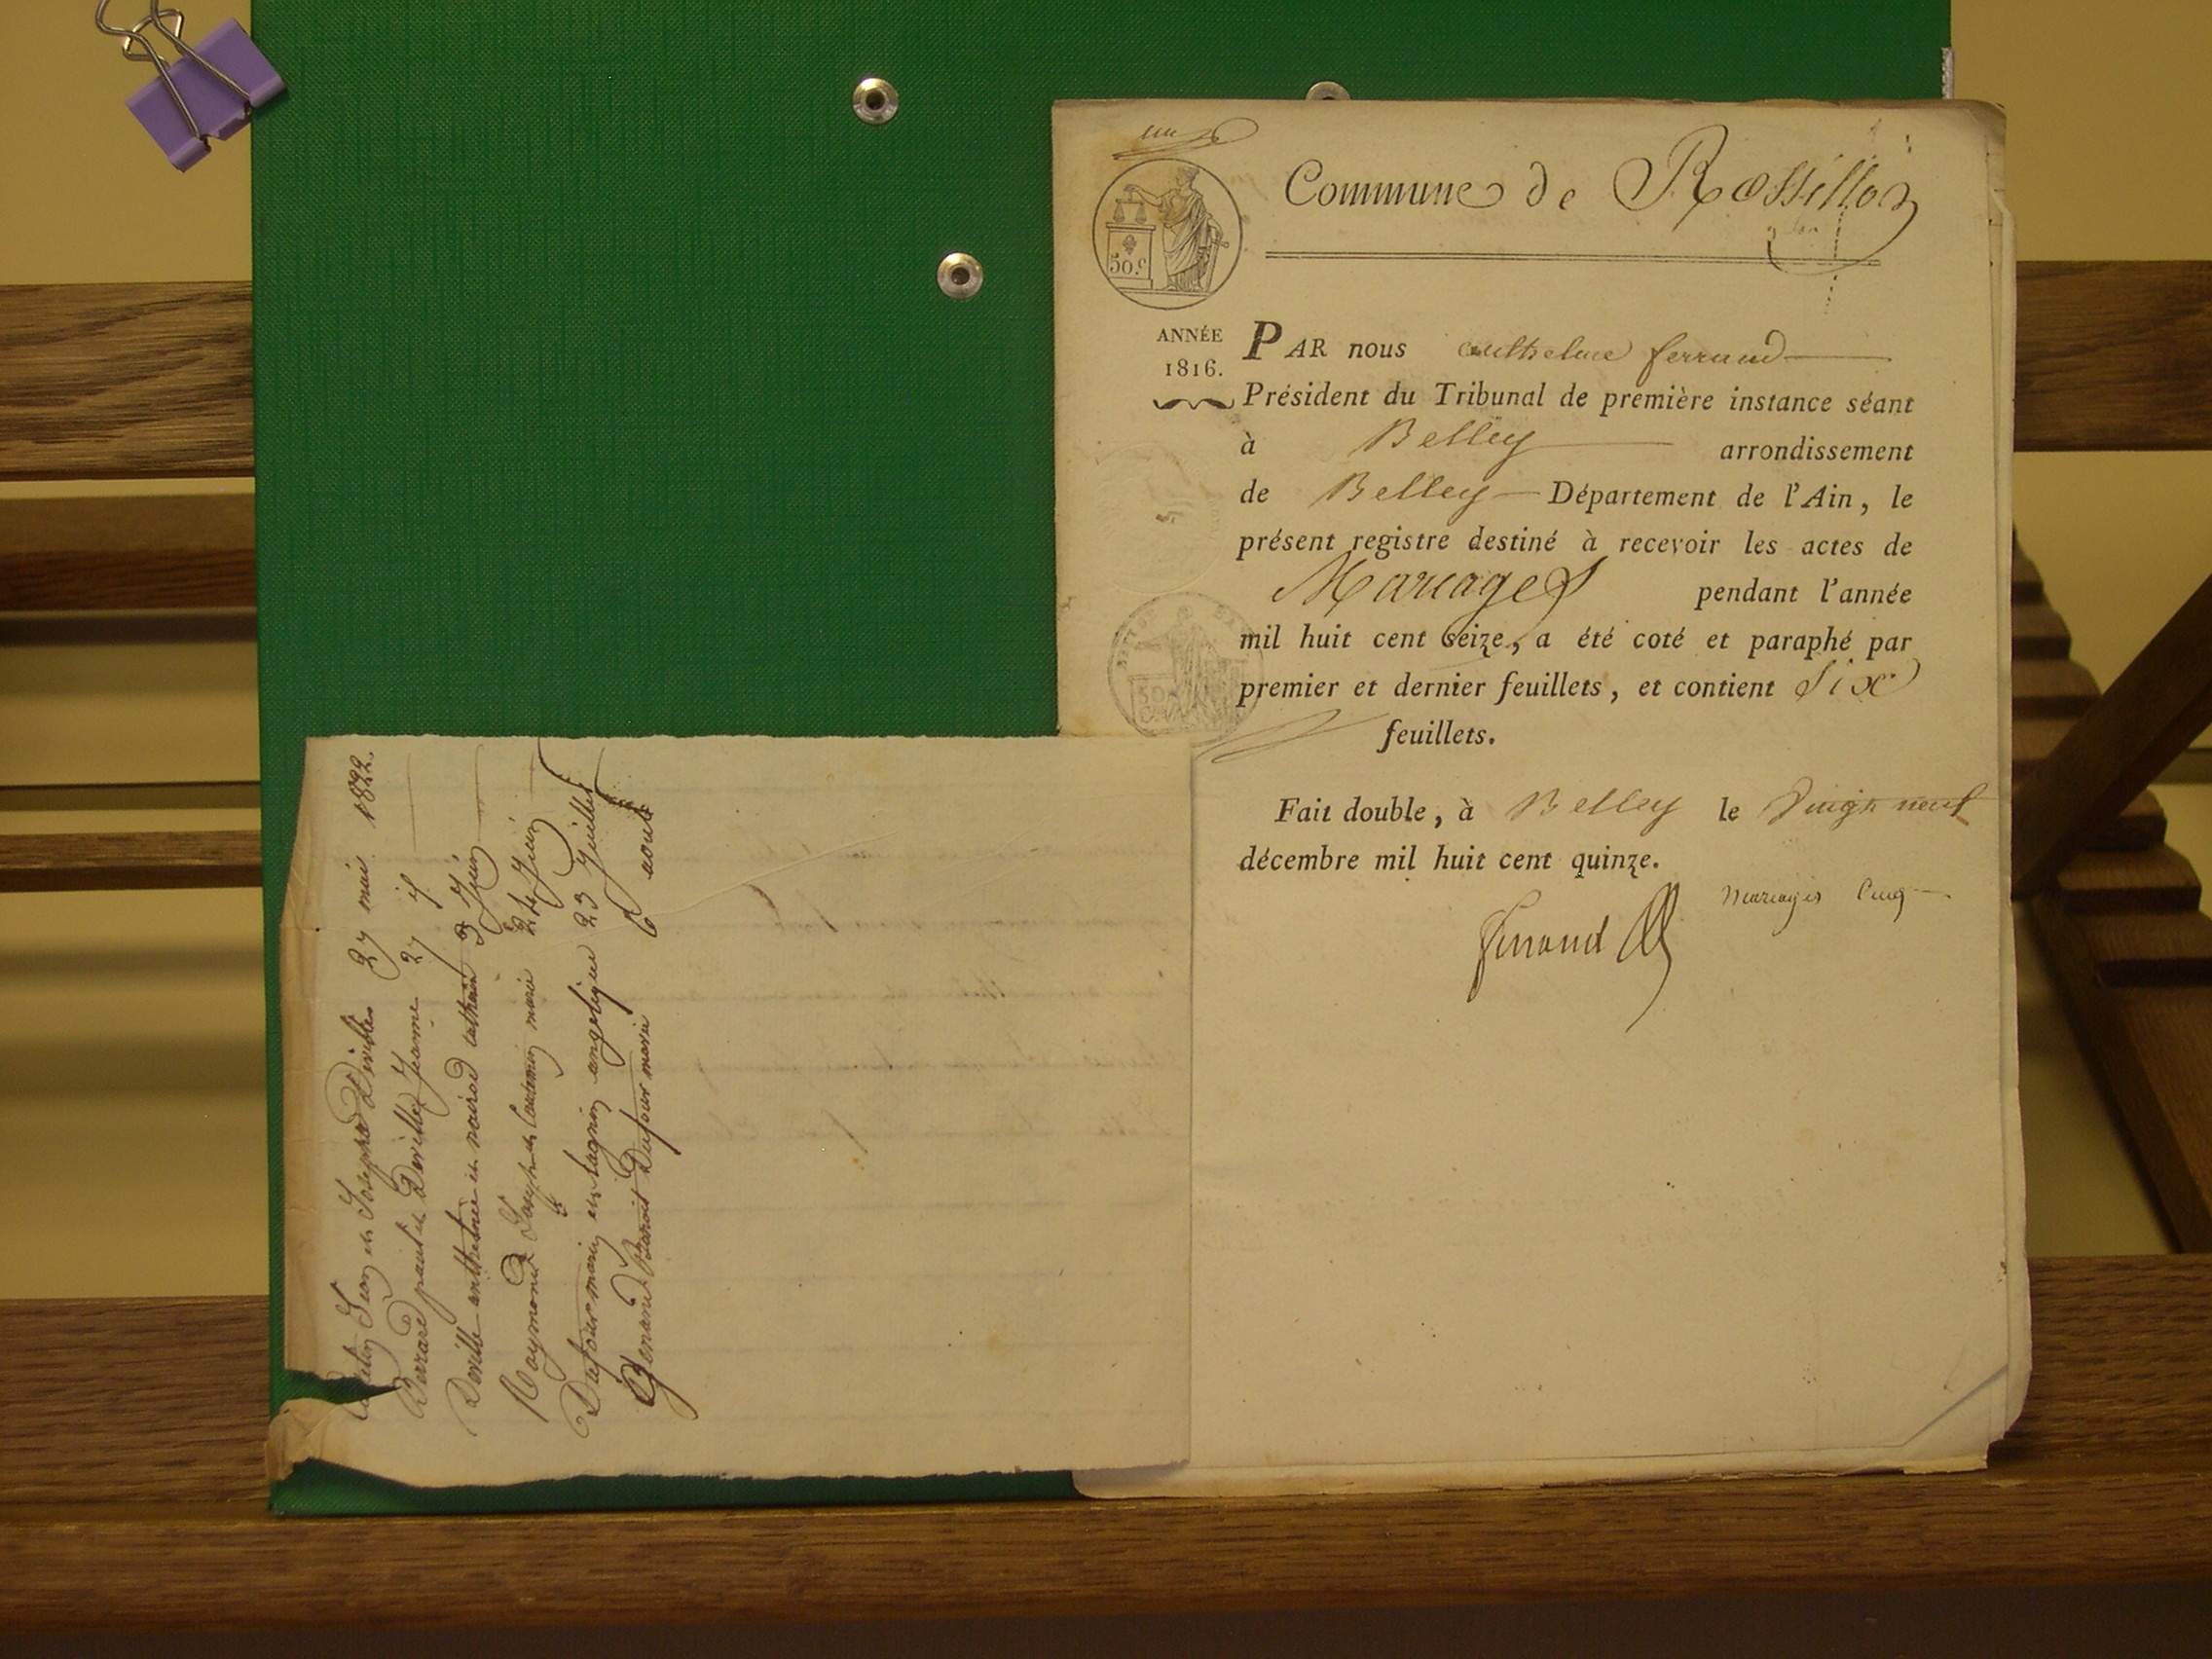 Commune de Rossillon
50.c
ANNÉE
1816.
PAR nous anthelme ferrand
Président du Tribunal de première instance séant
à Belley arrondissement
de Belley Département de l'Ain, le
présent registre destiné à recevoir les actes de
Mariages pendant l'année
mil huit cent seize, a été coté et paraphé par
premier et dernier feuillets, et contient Six
feuillets.
Fait double, à Belley le Vingt neuf
décembre mil huit cent quinze.
Mariages Cinq
ferrand
Jean et Josephe Deville 27 mai 1822.
Berrard paul et Deville Jeanne 27
Deville anthelme et noirod 3 Juin
Raymond Joseph et marie 24 Juin
Dufour et tagnin angelique 23 Juillet
Genand Benoit Dufour marie 6 aout